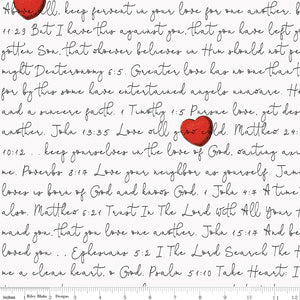 Above all, keep fervent in your love for one another.
11:29 But I have this against you, that you have left yo
gotten Son, that whoever believes in Him should not pe
might Deuteronomy 6:5. Greater love has no one than t
for by this some have entertained angels unaware. He
and a sincere faith. 1 Timothy 1:5 Pursue love, yet des
another. John 13:35 Love all you cold. Matthew 24:
10:12 ... keep yourselves in the love of God, waiting an
me. Proverbs 8:17 Love your neighbor as yourself. Jam
loves is born of God and knows God. 1 John 4:7 A time
also. Matthew 6:21 Trust In The Lord With All Your H
and you, that you love one another. John 15:17 And be
loved you ... Ephesians 5:2 I The Lord Search The H
me a clean heart, O God. Psalm 51:10 Take Heart I
Inches 1 Riley Blake 2 Designs 3 4 5 6 7 8 9 10 11 12